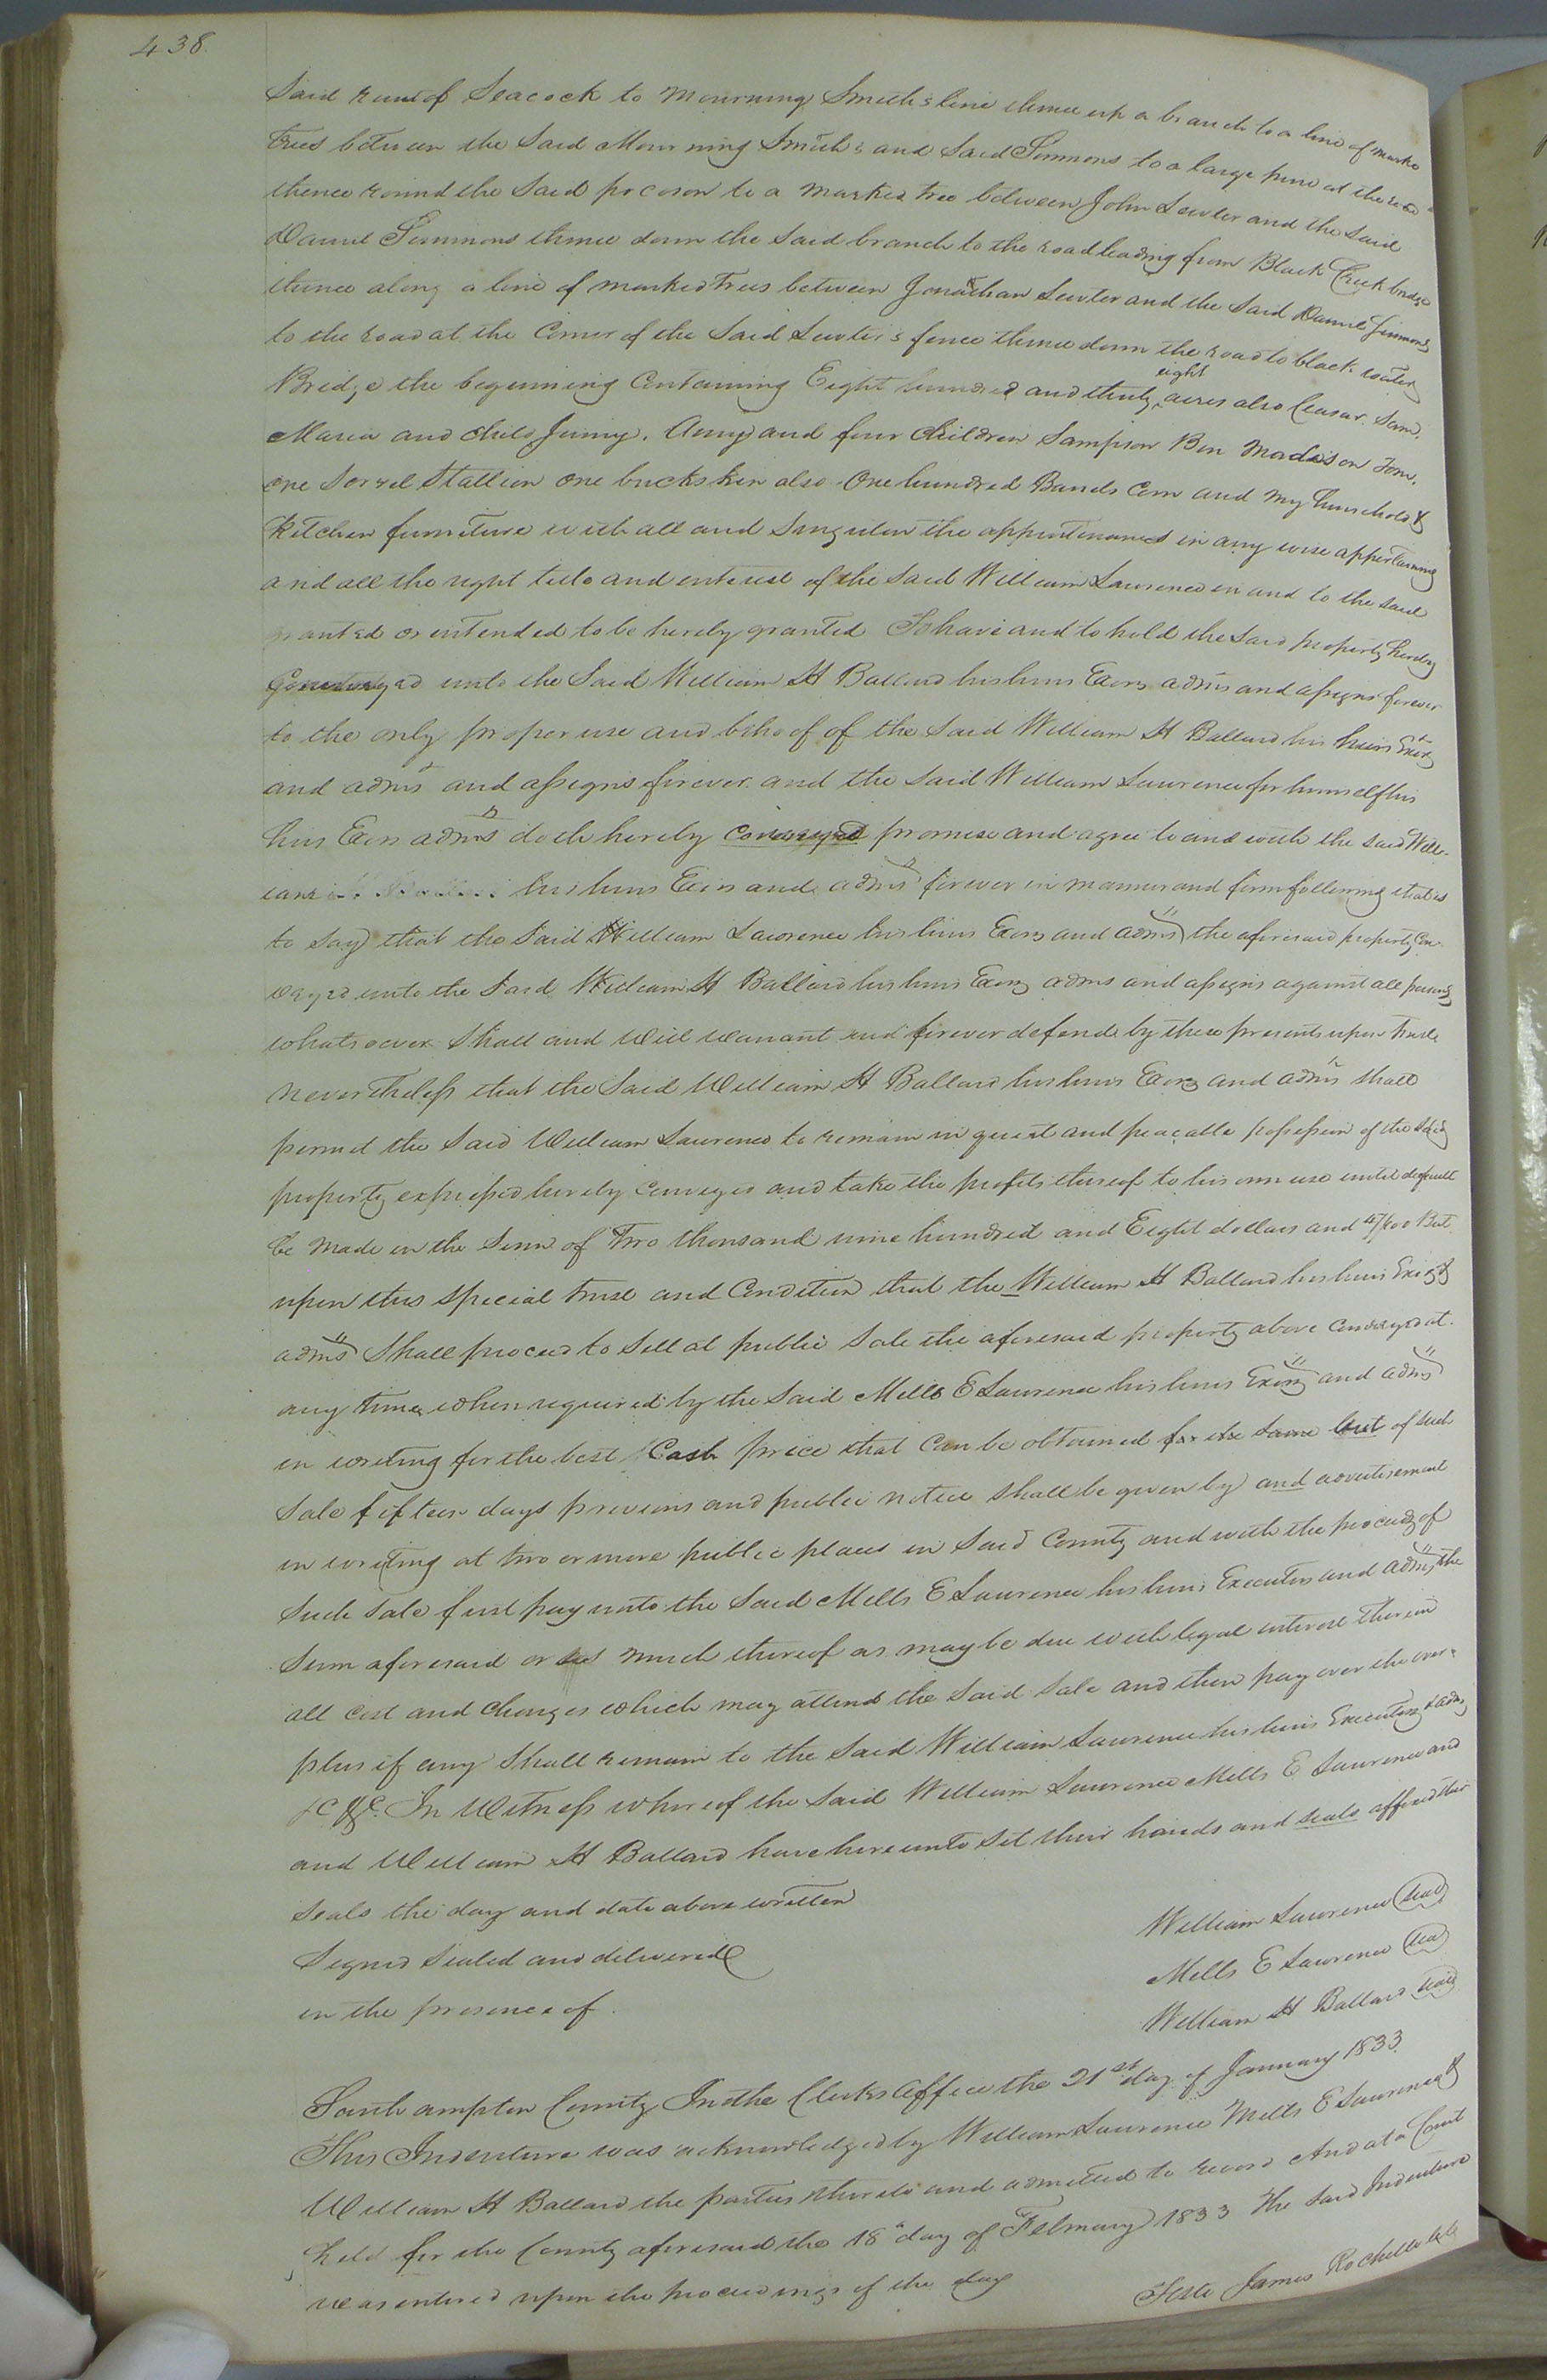 438.
Said run of Seacock to Mourning Smith's line thence up a branch to a line of marke
trees between the Said Mourning Smith & and Said Simmons to a large pine at the road
thence round the Said pocoson to a marked tree between John Lawter and the Said
Daniel Simmons thence down the Said branch to the road leading from Black Creek bridge
thence along a line of marked trees between Jonathan Lawter and the Said Daniel Simmons
to the road at the Corner of the Said Lawter's fence thence down the road to black water
eight
Bridge the beginning Containing Eight hundred and thirty acres also Ceasar. Sam.
Maria and child Jinny. Amy and four Children Sampson Ben Madison Tom.
one Sorrel Stallion one buckskin also One hundred Barrels Corn and my household &
Kitchen furniture with all and Singular the appurtenances in any wise appertaining
and all the right title and interest of the Said William Lawrence in and to the said
granted or intended to be hereby granted To have and to hold the Said property hereby
Conveyed unto the Said William H Ballard his heirs Exors adms and assigns forever
to the only proper use and behoof of the Said William H Ballard his heirs Exors
and adms and assigns forever. and the Said William Lawrence for himself his
heirs Exors adms doth hereby Conveyed promise and agree to and with the said Will-
iam H Ballard his heirs Exors and adms forever in manner and form following that is
to Say that the Said William Lawrence his heirs Exors and adms the aforesaid property Con-
veyed unto the Said William H Ballard his heirs Exors adms and assigns against all persons
whatsoever Shall and Will warrant and forever defend by these presents upon Trust
nevertheless that the Said William H Ballard his heirs Exors and adms shall
permit the Said William Lawrence to remain in quiet and peacable possession of the Said
property expressed hereby Conveyed and take the profits thereof to his own use until default
be made in the Sum of Two thousand nine hundred and Eight dollars and 4/100 But
upon this special trust and Condition that the William H Ballard his heirs Exors &
adms Shall proceed to Sell at public Sale the aforesaid property above Conveyed at.
any time when required by the Said Mills E Lawrence his heirs Exors and adms
in writing for the best Cash price that Can be obtained for the Same but of such
Sale fifteen days previous and public notice shall be given by and advertisement
in writing at two or more public places in Said County and with the proceeds of
Such Sale first pay unto the Said Mills E Lawrence his heirs Executors and adms, the
Sum aforesaid or as much thereof as may be due with legal interest thereon
all cost and charges which may attend the Said Sale and then pay over the over-
plus if any Shall remain to the Said William Lawrence his heirs Executors & adms
&c &c. In Witness whereof the Said William Lawrence Mills E Lawrence and
and William H Ballard have hereunto Set their hands and seals affixed their
Seals the day and date above written
Signed Sealed and delivered
in the presence of.
William Lawrence Seal
Mills E Lawrence Seal
William H Ballard Seal
Southampton County In the Clerks Office the 21st day of January 1833.
This Indenture was acknowledged by William Lawrence Mills E Lawrence &
William H Ballard the parties thereto and admitted to record And at a Court
held for the County aforesaid the 18" day of February 1833 The Said Indenture
was entered upon the proceedings of the day
Teste James Rochelle